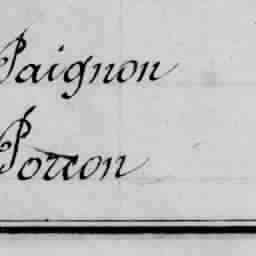 Paignon
Porcon